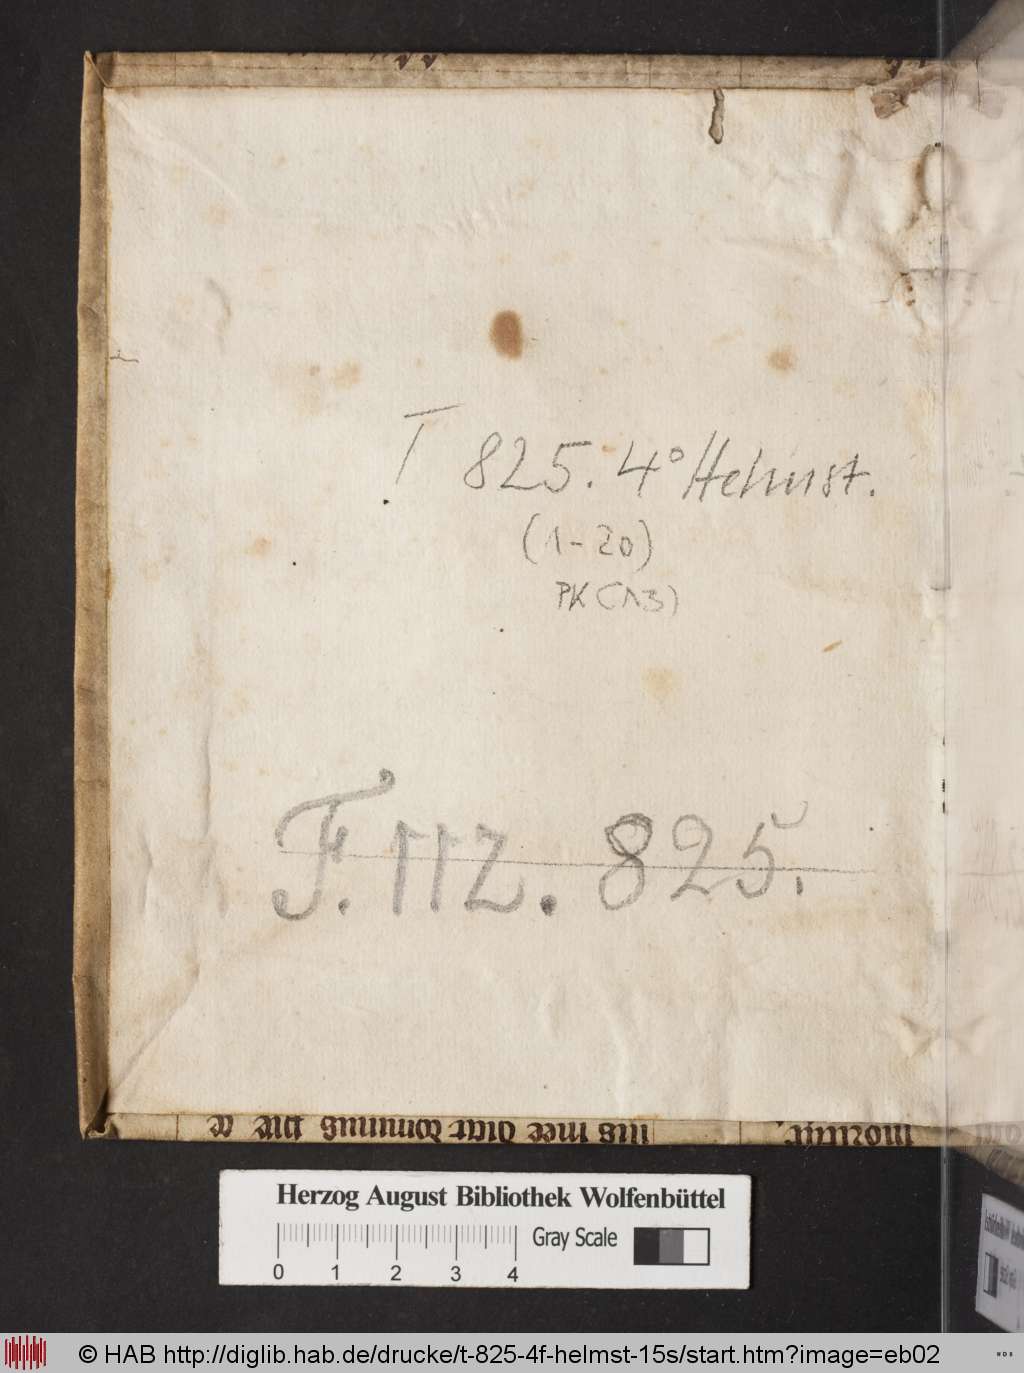 T 825. 4° Helmst.
(1-20)
PK (13)
F. 112. 825.
Herzog August Bibliothek Wolfenbüttel
Gray Scale
0 1 2 3 4
© HAB http://diglib.hab.de/drucke/t-825-4f-helmst-15s/start.htm?image=eb02